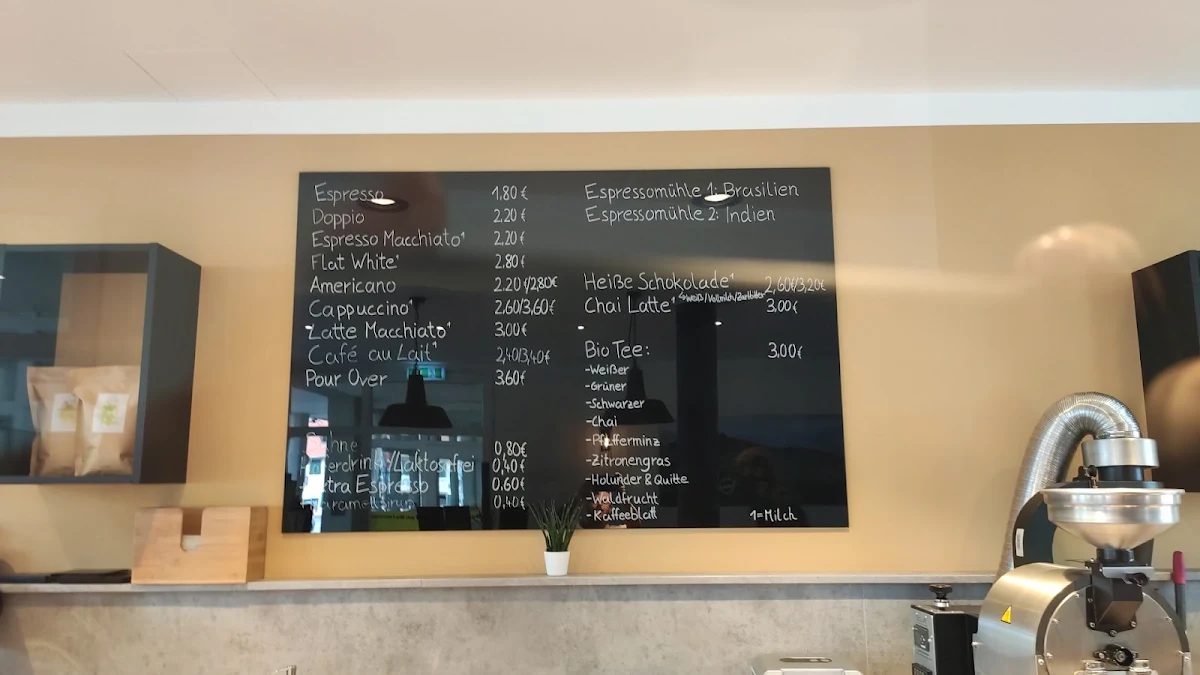 Espresso 1.80 €
Doppio 2.20 €
Espresso Macchiato¹ 2.20 €
Flat White¹ 2.80 €
Americano 2.20 €/2,80€
Cappuccino¹ 2,60/3,60€
Latte Macchiato¹ 3,00€
Café au Lait¹ 2,40/3,40€
Pour Over 3.60€
0,80€
/Laktosefrei 0,40€
Extra Espresso 0.60€
0,40€
Espressomühle 1: Brasilien
Espressomühle 2: Indien
Heiße Schokolade¹ 2,60€/3,20€
Weiß/Vollmilch/Zartbitter
Chai Latte¹ 3,00€
Bio Tee: 3,00€
-Weißer
-Grüner
-Schwarzer
-Chai
-Pfefferminz
-Zitronengras
-Holunder & Quitte
-Waldfrucht
-Kaffeeblatt
1=Milch